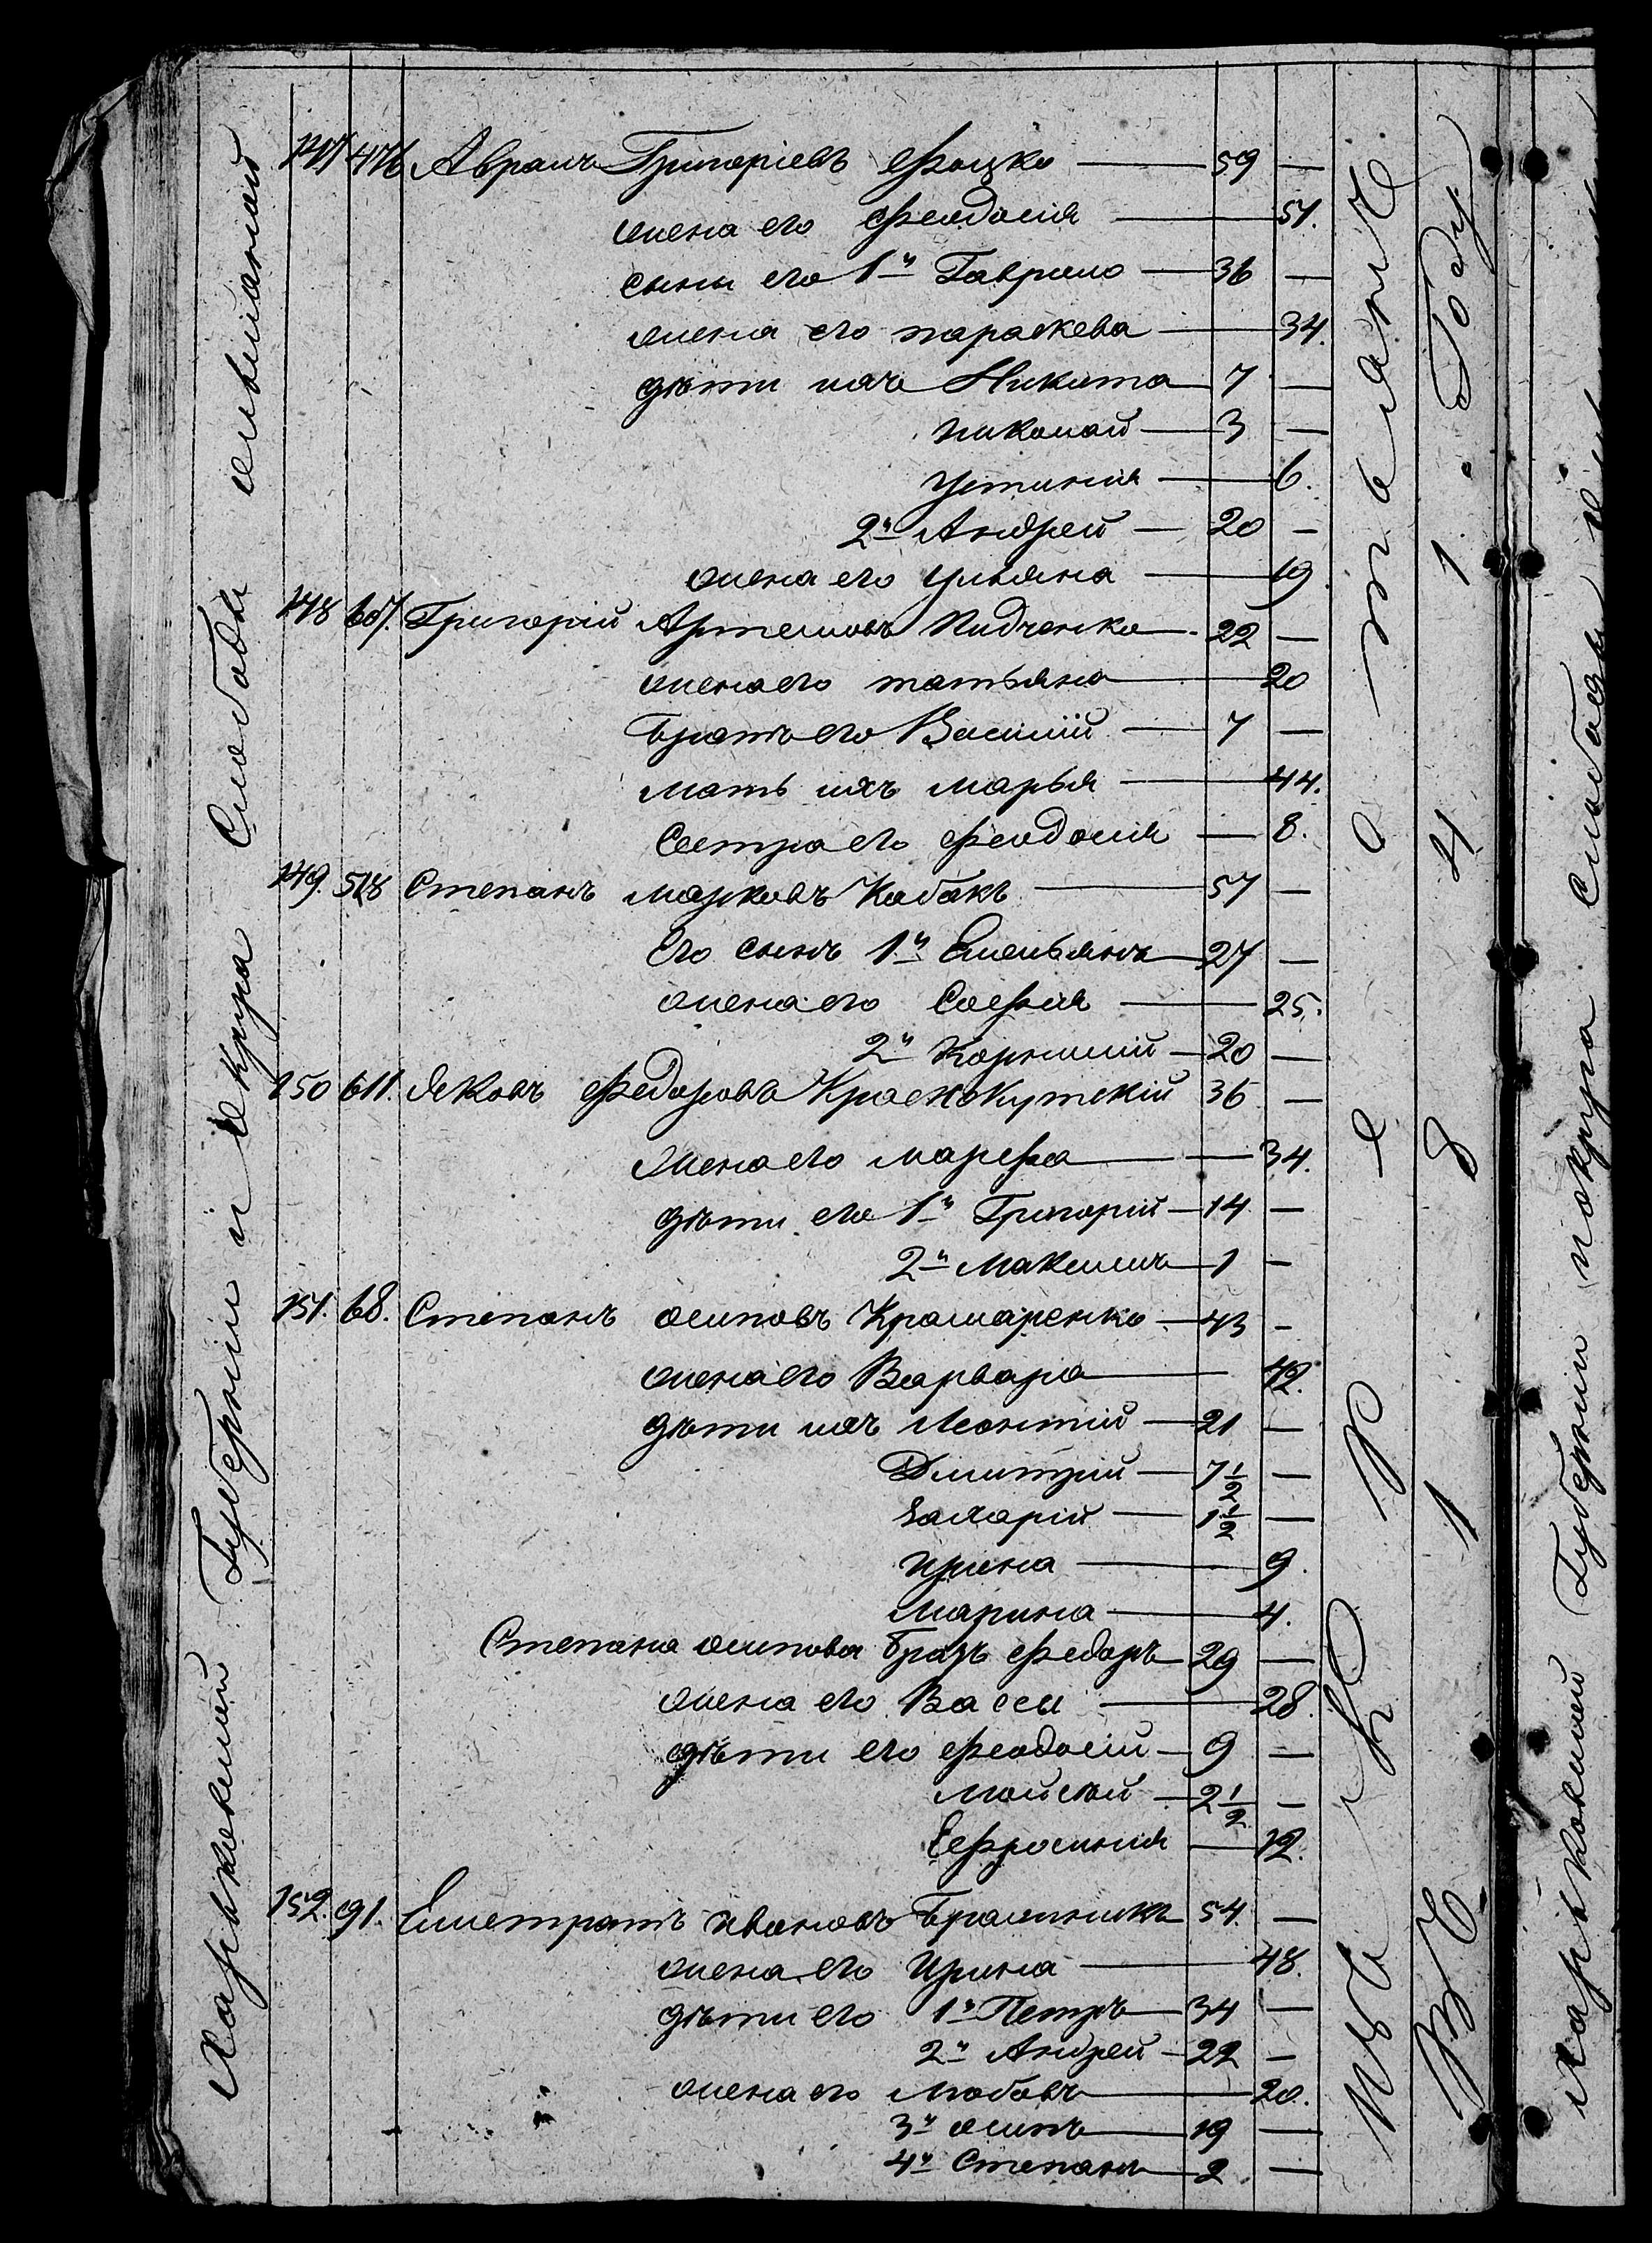 Харьковской Губерніи и округа Слободы
147 476 Аврамъ Григоріевъ Фоцко — 59 —
жена его Феодосія — 51.
сыны его 1й Гаврило — 36 —
жена его параскева — 34.
дѣти ихъ Никита — 7 —
николай — 3 —
Устинія — 6.
2й Андрей — 20 —
жена его Ульяна — 19
148 607. Григорій Артемовъ Пидченко — 22 —
жена его татьяна — 20
братъ его Василій — 7 —
мать ихъ марья — 44.
Сестра его феодосія — 8.
149. 518 Степанъ марковъ Кобакъ — 57 —
Его сынъ 1й Емельянъ — 27 —
жена его Софія — 25.
2й Корнилій — 20 —
150 611. Яковъ Федоровъ Краснокутскій 36 —
Жена его марфа — 34.
дѣти его 1й Григорій — 14 —
2й Максимъ — 1 —
151. 68. Степанъ осиповъ Крамаренко — 43 —
жена его Варвара — 42.
дѣти ихъ Леонтій — 21 —
Дмитрій — 7 1/2 —
Захарій — 1 1/2 —
Ирина — 9.
Марина — 4.
Степана осипова братъ федоръ — 29 —
жена его Васса — 28.
дѣти его феодосій — 9 —
Мойсей — 2 1/2 —
Ефросинія — 12.
152. 91. Евстратъ ивановъ — 54. —
жена его Ирина — 48.
дѣти его 1й Петръ — 34 —
2й Андрей — 22 —
жена его любовь — 20.
3й осипъ — 19 —
4й Степанъ — 2 —
Въ 1 8 4 1 Году
Харьковской Губерніи и округа Слободы